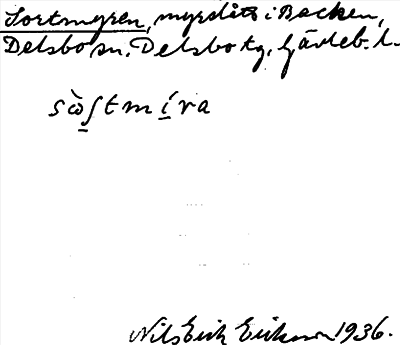 Sortmyren, myrslått i Backen,
Delsbo sn. Delsbo tg, Gävleb. l.
sὼʃtmíra
Nils Erik Erikson 1936.